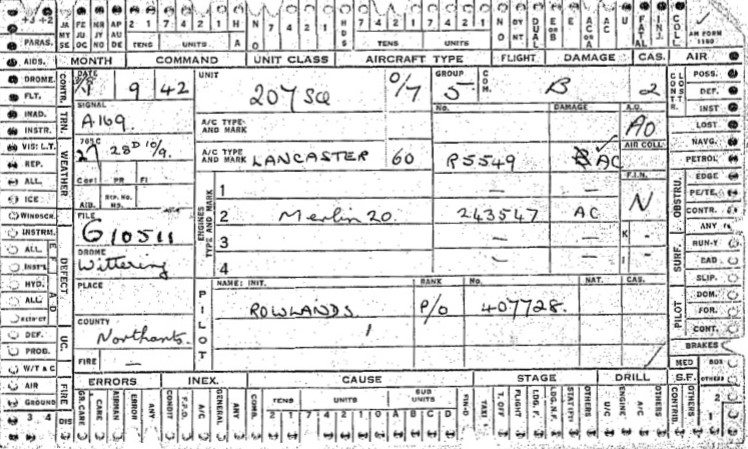 +3 +2 JA MY SE FE JU OC MR JY NO AP AU DE 2 1 7 4 2 1 H A N O 7 4 2 1 HDS 7 4 2 1 7 4 2 1 N O DY NT DUAL E OR B E AC OR A AC U FATAL INJ. COLL. AM FORM 1180
PARAS. TENS UNITS TENS UNITS
AIDS. MONTH COMMAND UNIT CLASS AIRCRAFT TYPE FLIGHT. DAMAGE CAS. AIR
DROME. CONTR. DATE 9 42 UNIT 207 SQ O/7 GROUP 5 COM. B 2 CONTR. LOSTR. POSS.
FLT. DEF.
INAD. TRN. SIGNAL A169 A/C TYPE AND MARK No. DAMAGE A.O. AO INST
INSTR. LOST
VIS: L.T. WEATHER 765C 27 28D 10/9. A/C TYPE AND MARK LANCASTER 60 R5549 AC AIR COLL. NAVG.
REP. PETROL
ALL. COPI PR FI ENGINES TYPE AND MARK 1 — — F.I.N. N OBSTRU. EDGE
ICE AIB. REP. No. PE/TE.
WINDSCR. FILE G10511 2 Merlin 20. 243547 AC CONTR.
INSTRUM. DEFECT. ANY
ALL DROME Wittering 3 — — K - SURF. RUN-Y
INST'L 4 — — I - BAD
HYD. PLACE PILOT NAME: INIT. RANK No. NAT. CAS. SLIP.
ALL ROWLANDS P/O 407728. PILOT DOM.
COUNTY Northants. FOR.
DEF. UC. CONT.
PROB. FIRE — BRAKES
W/T & C ERRORS INEX. CAUSE STAGE DRILL MED S.F. BOX OTHERS
AIR FIRE GR. CARE A. CARE AIRMAN ERROR ANY CONDIT F.P.D. A/C GENERAL ANY COMB. TENS UNITS SUB UNITS FIN-D TAXI T. OFF FLIGHT LDG. F. LDG. N.F. STAT (PI) OTHERS U/C ENGINE A/C OTHERS CONTRIB. OTHERS 2
GROUND
3 4 DIS 2 1 7 4 2 1 0 A B C D 1